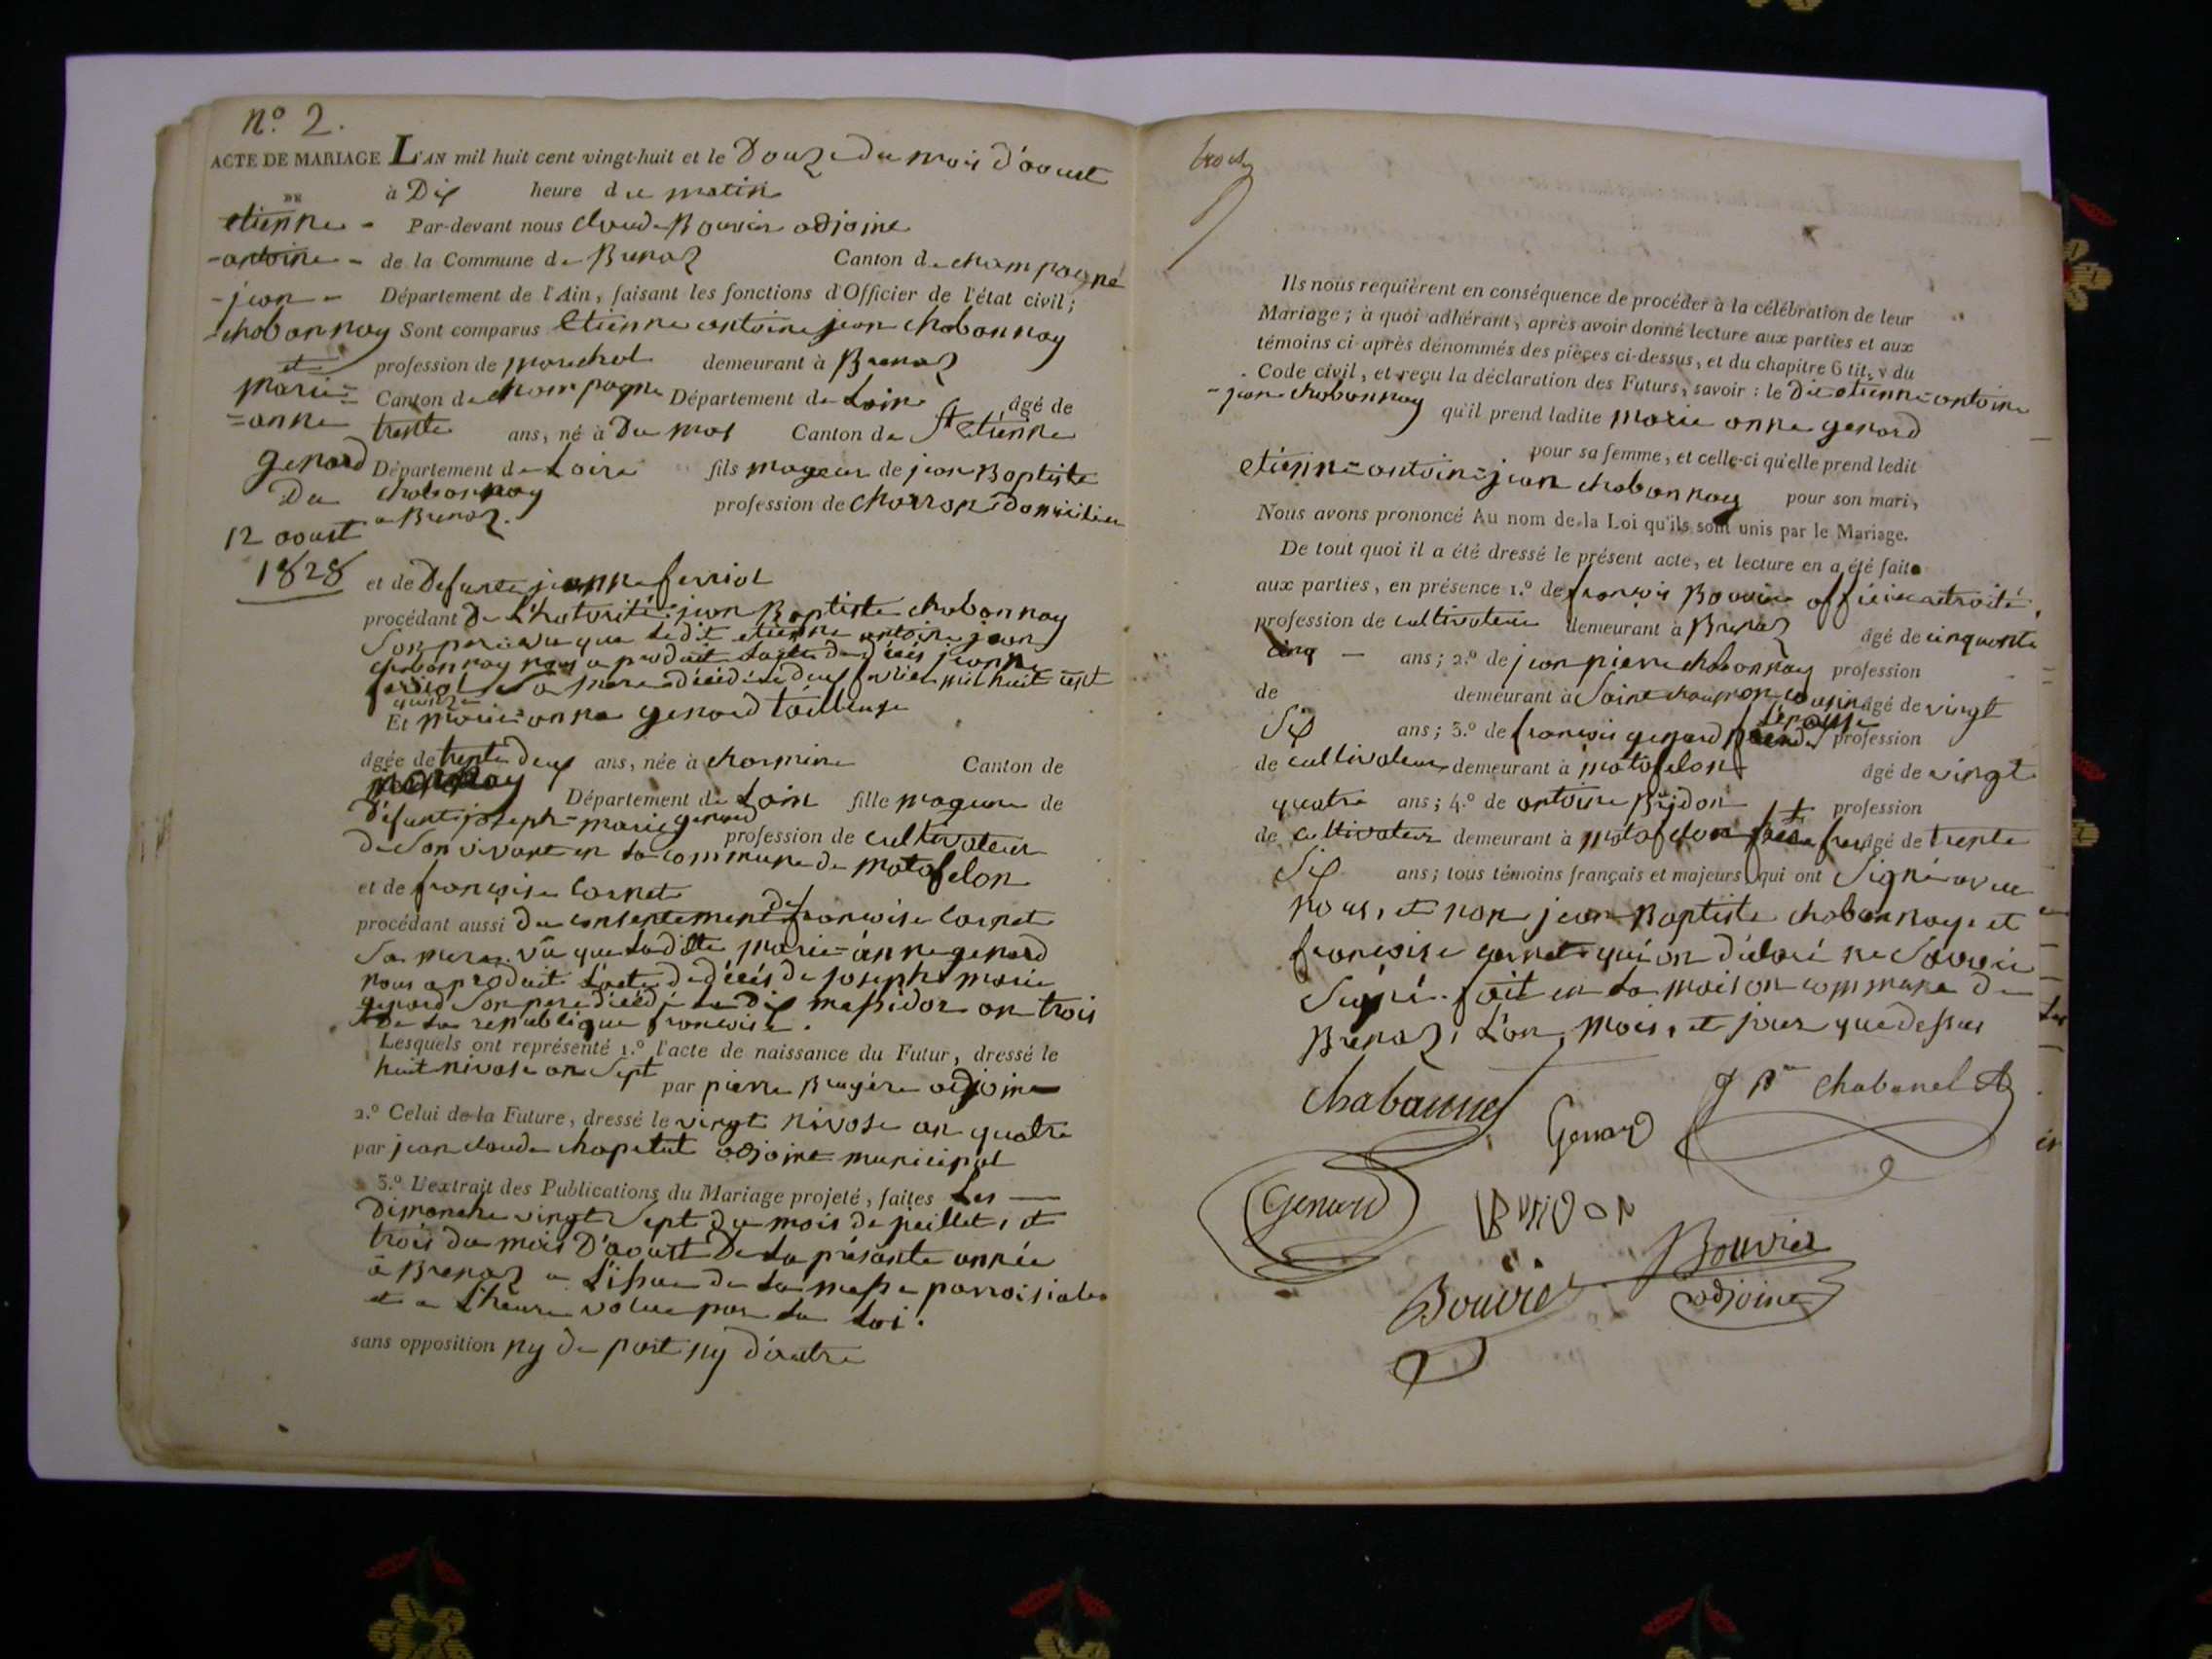 n.º 2.
ACTE DE MARIAGE L'AN mil huit cent vingt-huit et le Douze du mois d'aoust
DE
à Dix heure du matin
etienne - Par-devant nous claude Bouvier adjoint
- antoine - de la Commune de Brenaz Canton de champagne
- jean - Département de l'Ain, faisant les fonctions d'Officier de l'état civil;
- chabannay Sont comparus Etienne antoine jean chabannay
et profession de marechal demeurant à Brenaz
marie= Canton de champagne Département de Lain âgé de
=anne trente ans, né à Canton de St Etienne
genard Département de Loire fils mageur de jean Baptiste
Du chabannay profession de charron Domicilié
a Brenaz.
12 aoust
1828 et de Defunte jeanne ferriol
procédant De L'hatorité jean Baptiste chabannay
Son pere vu que Le dit etienne antoine jean
chabannay nous a produit Lacte de décés jeanne
ferriol Sa mere décédée deux mil huit cent
quinze
Et marie=anne genard tailleuse
âgée de trente Deux ans, née à charmine Canton de
Département de Lain fille mageure de
défunt joseph=marie genard profession de cultivateur
de Son vivant en La commune de matafelon
et de françoise Cornet
procédant aussi du consentement de françoise Cornet
Sa mere. vû que Laditte marie=anne genard
nous a produit L'acte de décés de joseph marie
genard Son pere décédé Le dix messidor an trois
De La republique françoise.
Lesquels ont représenté 1.º l'acte de naissance du Futur, dressé le
huit nivose an Sept par pierre adjoint
2.º Celui de la Future, dressé le vingt nivose an quatre
par jean claude chapelut adjoint municipal
3.º L'extrait des Publications du Mariage projeté, faites Les —
Dimanche vingt Sept du mois de juillet, et
trois du mois D'aoust De La présante année
à Brenaz a L'issue de La messe parroisiale
et a L'heure volue par La Loi.
sans opposition ny de part ny d'autre
Ils nous requièrent en conséquence de procéder à la célébration de leur
Mariage; à quoi adhérant, après avoir donné lecture aux parties et aux
témoins ci-après dénommés des pièces ci-dessus, et du chapitre 6 tit. v du
Code civil, et reçu la déclaration des Futurs, savoir : le Dit etienne antoine
- jean chabannay qu'il prend ladite marie anne genard
pour sa femme, et celle-ci qu'elle prend ledit
etienne=antoine=jean chabannay pour son mari,
Nous avons prononcé Au nom de la Loi qu'ils sont unis par le Mariage.
De tout quoi il a été dressé le présent acte, et lecture en a été faite
aux parties, en présence 1.º de françois Bouvier officier retraité,
profession de cultivateur demeurant à Brenaz âgé de cinquante
cinq — ans; 2.º de jean pierre chabannay profession
de demeurant à Saint chaumon cousin âgé de vingt
Six ans; 3.º de françois genard profession
de cultivateur demeurant à matafelon âgé de vingt
quatre ans; 4.º de antoine Bridon profession
de cultivateur demeurant à matafelon âgé de trente
Six ans; tous témoins français et majeurs, qui ont Signé avec
nous, et non jean Baptiste chabannay, et
françoise cornet qui on déclaré ne Savoir
Signé. fait en La maison commune de
Brenaz, L'an, mois, et jour que dessus
Genard
Genard
Bouvier
Bouvier
adjoint